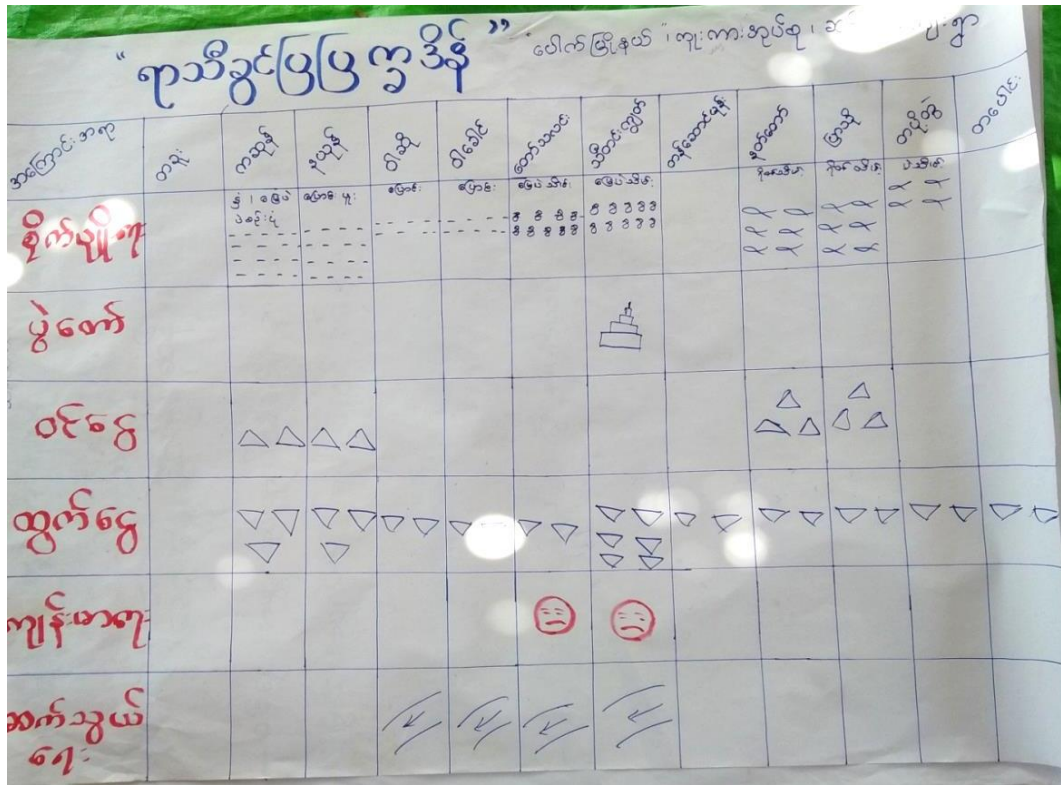 “ရာသီခွင်ပြပြက္ခဒိန်”
ပေါက်မြို့နယ်၊ ကျေးရွာ
အကြောင်းအရာ တန်ခူး ကဆုန် နယုန် ဝါဆို ဝါခေါင် တော်သလင်း သီတင်းကျွတ် တန်ဆောင်မုန်း နတ်တော် ပြာသို တပို့တွဲ တပေါင်း
စိုက်ပျိုးရေး
နှမ်း၊ မြေပဲ ပြောင်းဖူး ပြောင်း ပြောင်း မြေပဲသိမ်း မြေပဲသိမ်း ပဲသိမ်း
ပွဲတော်
ဝင်ငွေ
ထွက်ငွေ
ကျန်းမာရေး
ဆက်သွယ်
ရေး